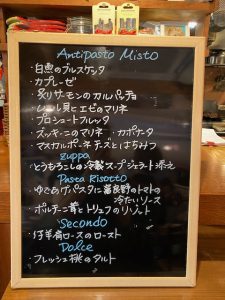 Antipasto Misto
・白魚のブルスケッタ
・カプレーゼ
・炙りサーモンのカルパッチョ
・ムール貝とエビのマリネ
・プロシュートフルッタ
・ズッキーニのマリネ ・カポナータ
・マスカルポーネチーズとはちみつ
Zuppa
・とうもろこしの冷製スープ ジェラート添え
Pasta Risotto
・ゆであげパスタに富良野のトマトの
冷たいソース
・ポルチーニ茸とトリュフのリゾット
Secondo
・仔羊肩ロースのロースト
Dolce
・フレッシュ桃のタルト